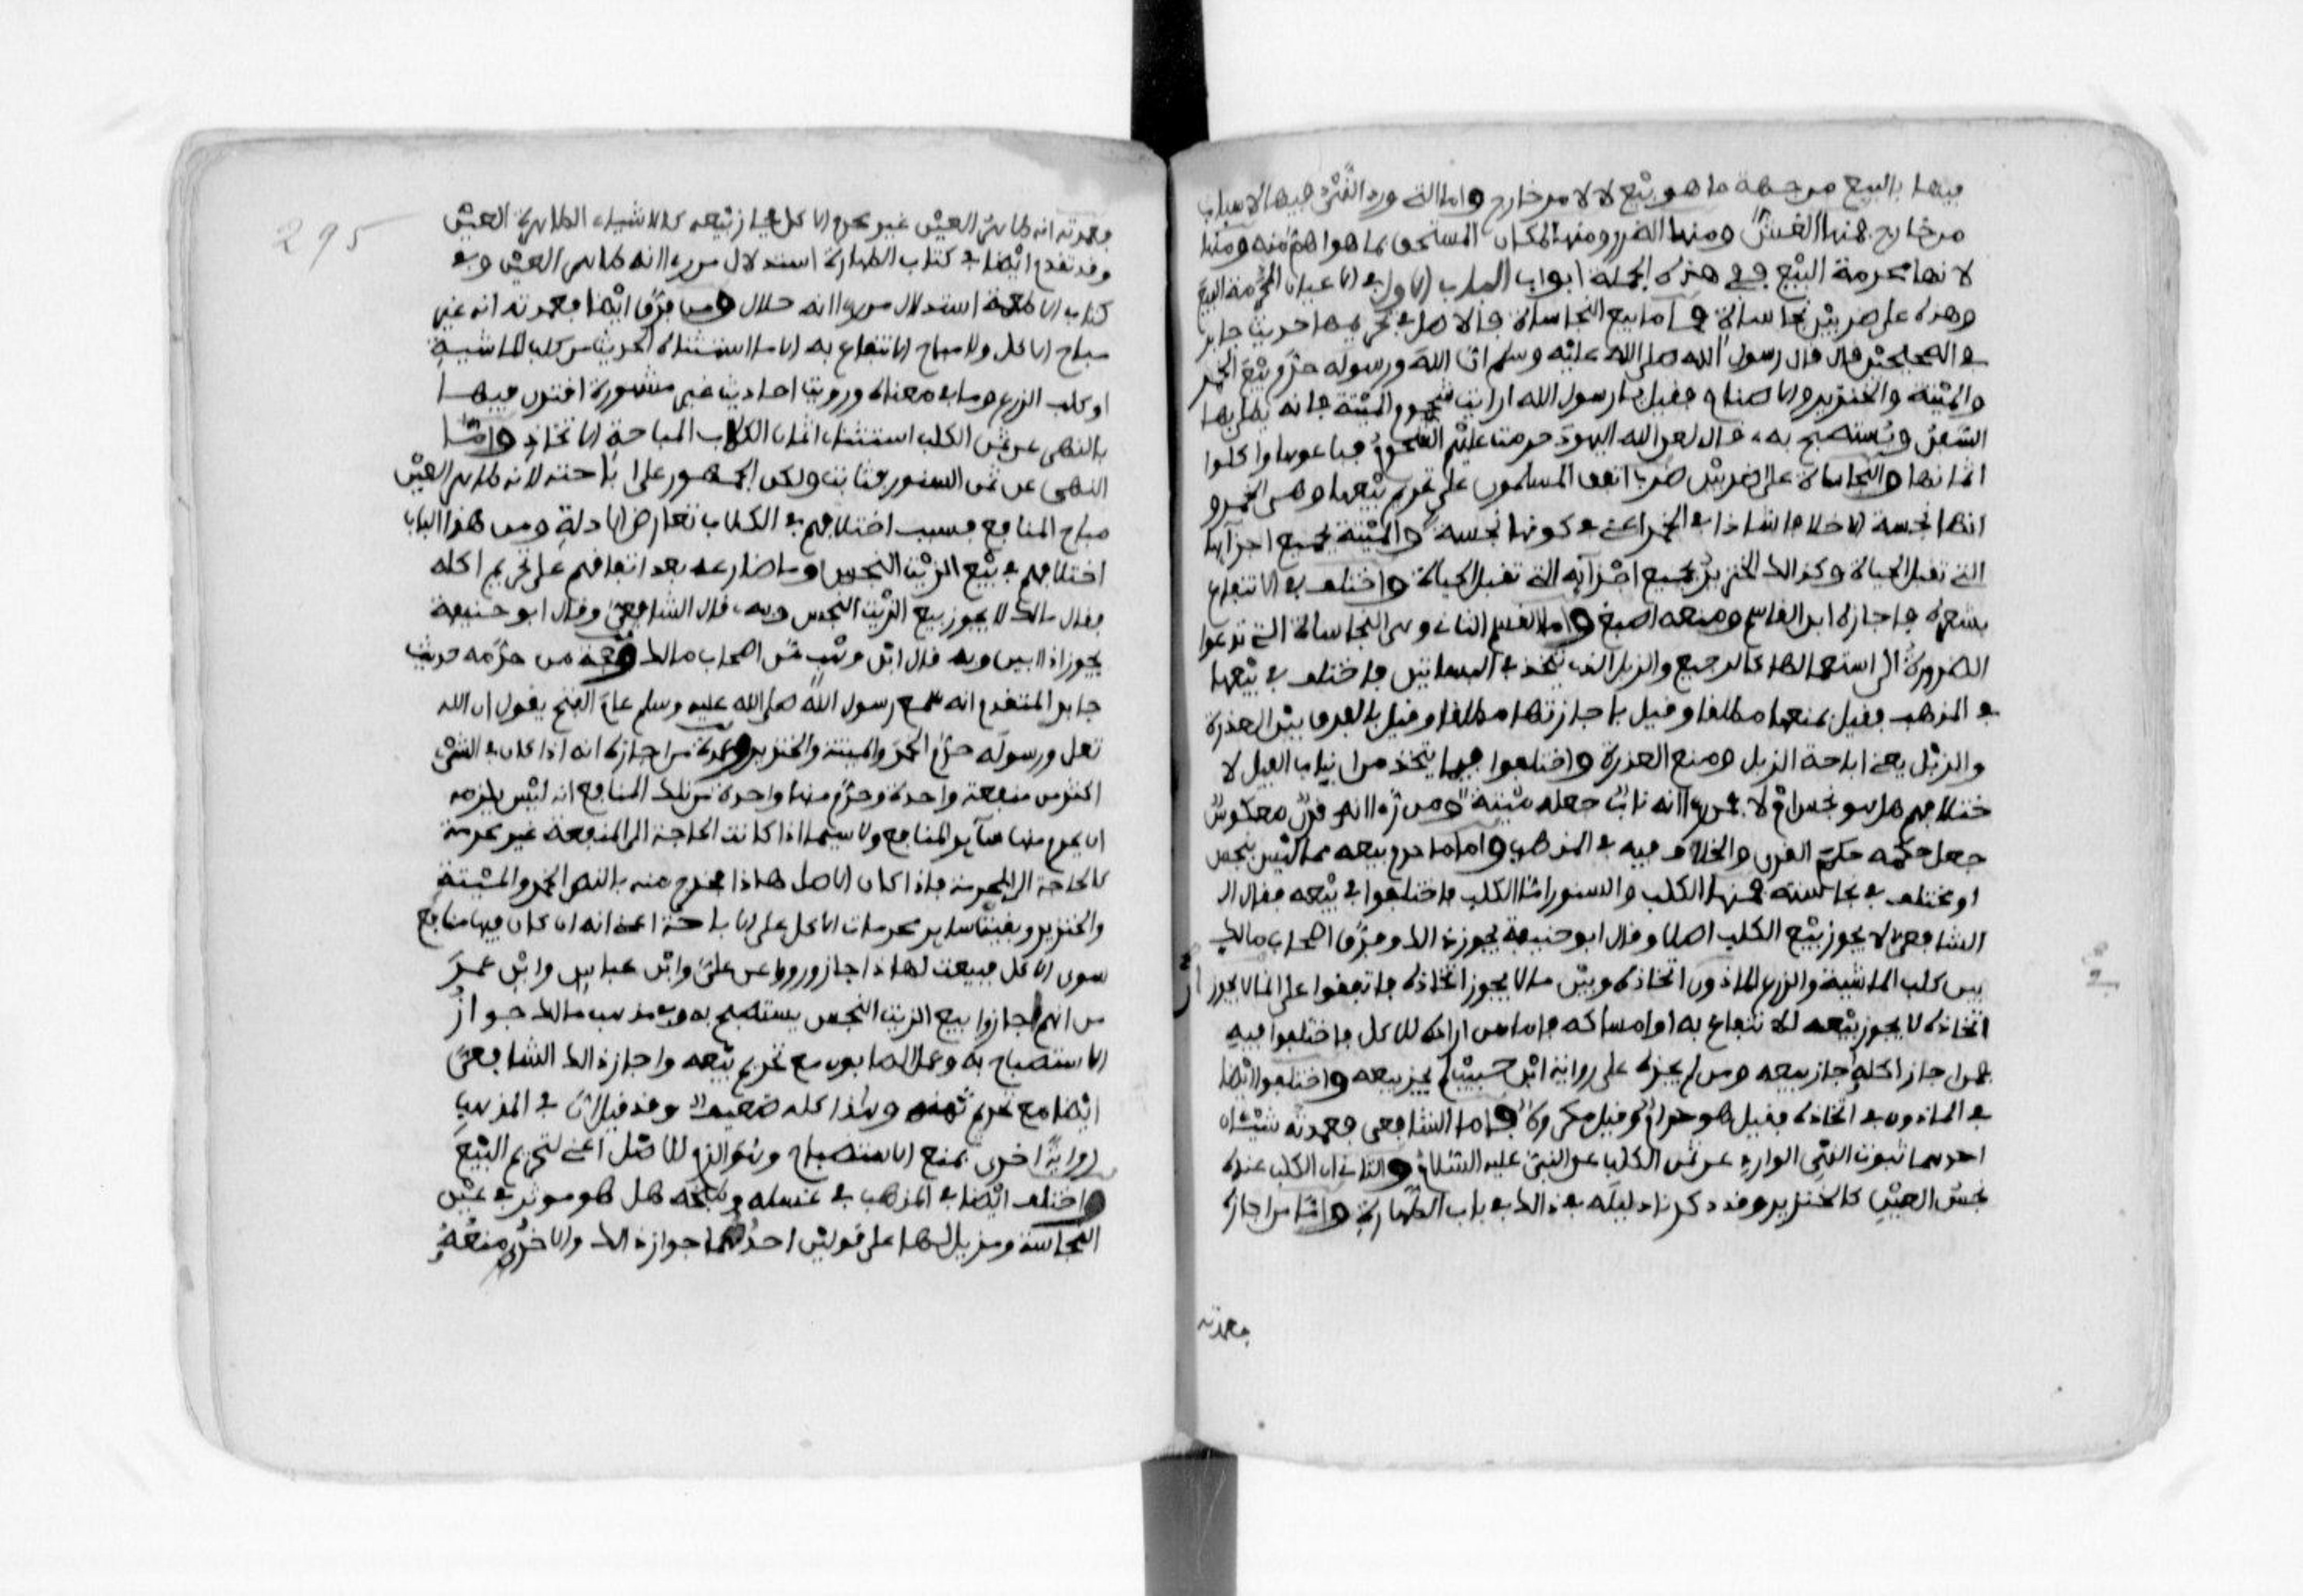 فيها بالبيع من جهة ما هو بيع لا لامر خارج واما التي ورد النهي فيها لاسباب
من خارج فمنها الغش ومنها الضرر ومنها لمكان الوقت المستحق بما هو اهم منه ومنها
لانها محرمة البيع ففي هذه الجملة ابواب الباب الاول في الاعيان المحرمة البيع
وهذه على ضربين نجاسات فاما بيع النجاسات فالاصل في تحريمها حديث جابر
في الصحيحين قال قال رسول الله صلى الله عليه وسلم ان الله ورسوله حرم بيع الخمر
والميتة والخنزير والاصنام فقيل يا رسول الله ارايت شحوم الميتة فانه يطلى بها
السفن ويستصبح به قال لعن الله اليهود حرمت عليهم الشحوم فباعوها واكلوا
اثمانها والنجاسات على ضربين ضرب اتفق المسلمون على تحريم بيعها وهي الخمر و
انها نجسة الا خلافا شاذا في الخمر اعني في كونها نجسة والميتة بجميع اجزائها
التي تقبل الحياة وكذالك الخنزير بجميع اجزايه التي تقبل الحياة واختلف في الانتفاع
بشعره فاجازه ابن القاسم ومنعه اصبغ واما القسم الثاني وهي النجاسات التي تدعوا
الضرورة الى استعمالها كالرجيع والزبل الذي يتخذ في البساتين فاختلف في بيعها
في المذهب فقيل بمنعها مطلقا وقيل باجازتها مطلقا وقيل بالفرق بين العذرة
والزبل يعني اباحة الزبل ومنع العذرة واختلفوا فيما يتخذ من انياب الفيل لا
ختلافهم هل هو نجس ام لا فمن راى انه ناب جعله ميتة ومن راى انه قرن معكوس
جعل حكمه حكم القرن والخلاف فيه في المذهب واما ما حرم بيعه مما ليس بنجس
او مختلف في نجاسته فمنها الكلب والسنور اما الكلب فاختلفوا في بيعه فقال
الشافعي لا يجوز بيع الكلب اصلا وقال ابو حنيفة يجوز ذالك وفرق اصحاب مالك
بين كلب الماشية والزرع الماذون اتخاذه وبين ما لا يجوز اتخاذه فاتفقوا على ان ما لا يجوز
اتخاذه لا يجوز بيعه للانتفاع به او امساكه فاما من اراده للاكل فاختلفوا فيه
فمن اجاز اكله اجاز بيعه ومن لم يجزه على رواية ابن حبيب لم يجز بيعه واختلفوا ايضا
في الماذون في اتخاذه فقيل هو حرام وقيل مكروه فاما الشافعي فعمدته شيئان
احدهما ثبوت النهي الوارد عن ثمن الكلب عن النبي عليه السلام والثاني ان الكلب عنده
نجس العين كالخنزير وقد ذكرنا دليله في ذالك في باب الطهارة واما من اجازه
فعمدته
295
فعمدته انه طاهر العين غير محرم الاكل فجاز بيعه كالاشياء الطاهرة العين
وقد تقدم ايضا في كتاب الطهارة استدلال من راى انه طاهر العين وفي
كتاب الاطعمة استدلال من راى انه حلال ومن فرق ايضا فعمدته انه غير
مباح الاكل ولا مباح الانتفاع به الا ما استثناه الحديث من كلب الماشية
او كلب الزرع وما في معناه ورويت احاديث غير مشهورة اقترن فيها
بالنهي عن ثمن الكلب استثناء اثمان الكلاب المباحة الاتخاذ واما
النهي عن ثمن السنور فثابت ولكن الجمهور على اباحته لانه طاهر العين
مباح المنافع فسبب اختلافهم في الكلاب تعارض الادلة ومن هذا الباب
اختلافهم في بيع الزيت النجس وما ضارعه بعد اتفاقهم على تحريم اكله
فقال مالك لا يجوز بيع الزيت النجس وبه قال الشافعي وقال ابو حنيفة
يجوز اذا بين وبه قال ابن وهب من اصحاب مالك وحجة من حرمه حديث
جابر المتقدم انه سمع رسول الله صلى الله عليه وسلم عام الفتح يقول ان الله
تعلى ورسوله حرم الخمر والميتة والخنزير وعمدة من اجازه انه اذا كان في الشيء
اكثر من منفعة واحدة وحرم منها واحدة من تلك المنافع انه ليس يلزمه
ان يحرم منها ساير المنافع ولا سيما اذا كانت الحاجة الى المنفعة غير محرمة
كالحاجة الى المحرمة فاذا كان الاصل هاذا يخرج منه بالنص الخمر والميتة
والخنزير وبقيت ساير محرمات الاكل على الاباحة اعني انه ان كان فيها منافع
سوى الاكل فبيعت لهاذا جاز ورووا عن علي وابن عباس وابن عمر
من انهم اجازوا بيع الزيت النجس يستصبح به وفي مذهب مالك جواز
الاستصباح به وعمل الصابون مع تحريم بيعه واجاز ذالك الشافعي
ايضا مع تحريم ثمنه وهذا كله ضعيف وقد قيل ان في المذهب
رواية اخرى بمنع الاستصباح وهو الزم للاصل اعني لتحريم البيع
واختلف ايضا في المذهب في غسله وطبخه هل هو موثر في عين
النجاسة ومزيل لها على قولين احدهما جواز ذالك والاخر منعه